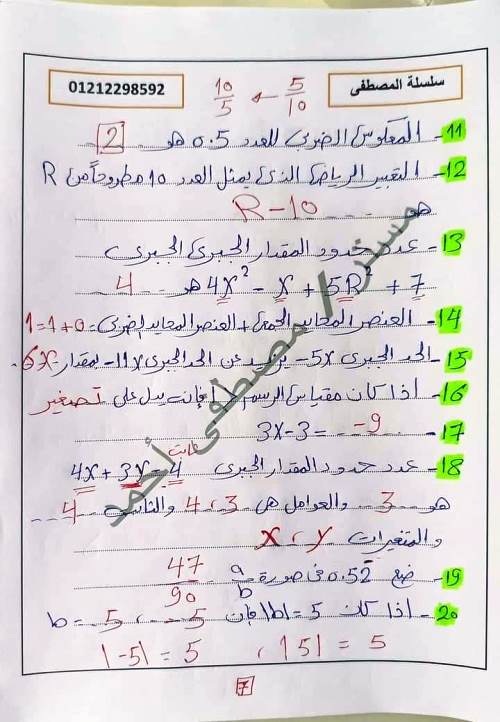 سلسلة المصطفى
10/5 ← 5/10
01212298592
11- المعكوس الضربى للعدد 0.5 هو 2
12- التعبير الرياضى الذى يمثل العدد 10 مطروحاً من R
هو R-10
13- عدد حدود المقدار الجبرى الجبرى
4X² - X + 5R² + 7 هو 4
14- العنصر المحايد الجمعى + العنصر المحايد الضربى = 0+1=1
15- الحد الجبرى 5X- يزيد عن الحد الجبرى 11X- بمقدار 6X
16- أذا كان مقياس الرسم < 1 فإنه يدل على تصغير
17- 3X-3 = -9
18- عدد حدود المقدار الجبرى 4X + 3Y - 4 ثابت
هو 3 والعوامل هى 3 ، 4 والثابت 4
والمتغيرات X ، y
19- ضع 0.52 فى صورة a/b 47/90
20- أذا كان |b| = 5 فإن b = 5 ، -5
|-5| = 5 ، |5| = 5
مستر / مصطفى أحمد
7